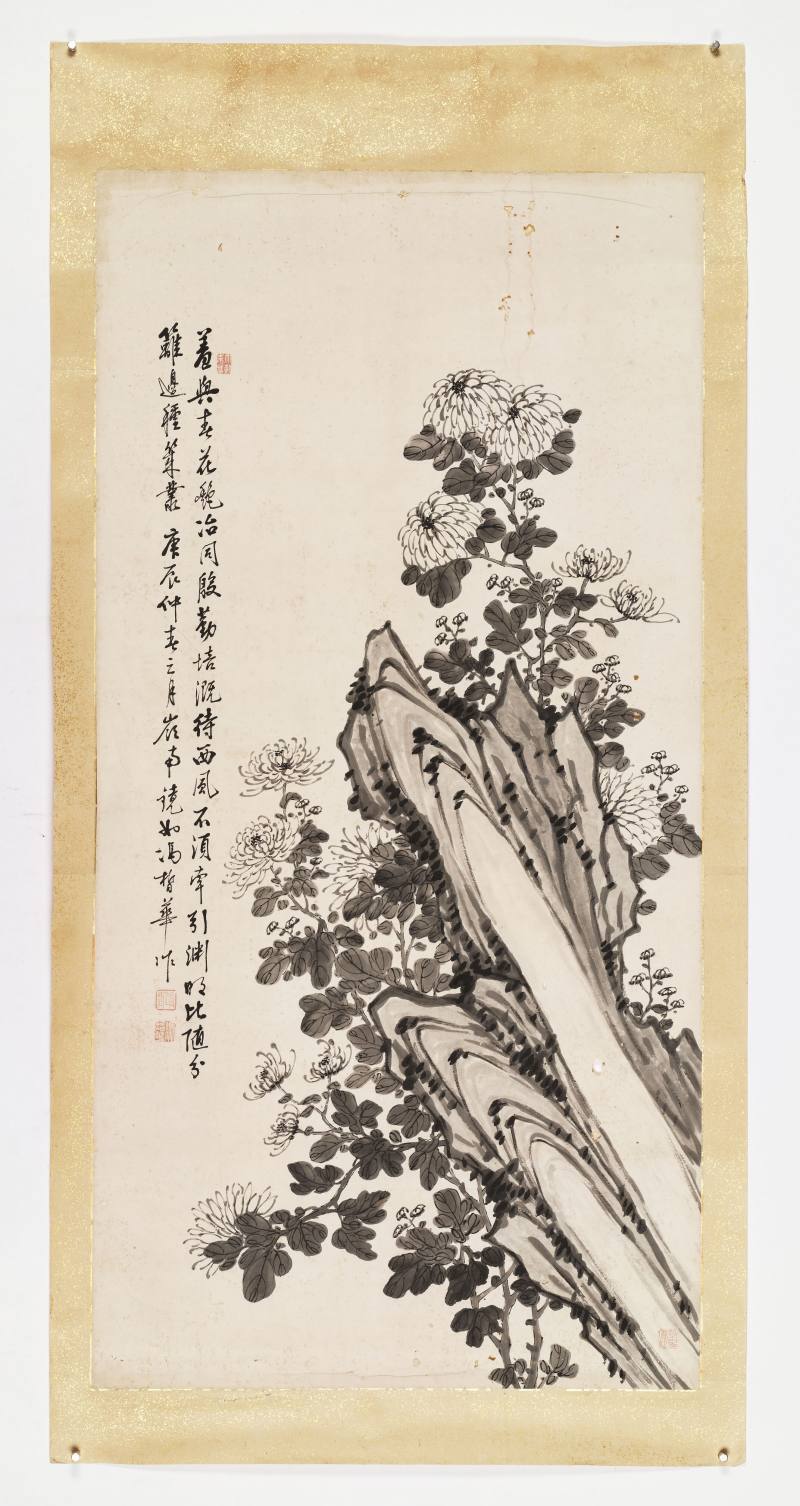 羞與春花艷冶同殷勤培溉待西風不須牽引淵明比隨分
籬邊種幾叢 庚辰仲春之月岩南鏡如馮哲華作